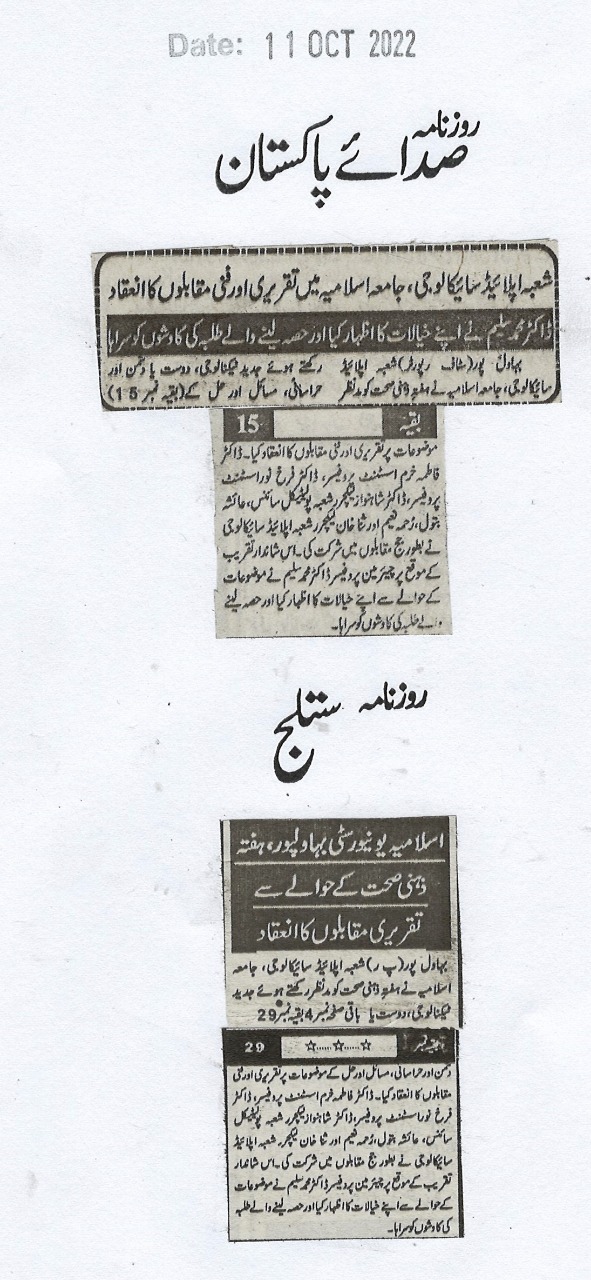 Date: 11 OCT 2022
روزنامہ
صدائے پاکستان
شعبہ اپلائیڈ سائیکالوجی، جامعہ اسلامیہ میں تقریری اور فنی مقابلوں کا انعقاد
ڈاکٹر محمد سلیم نے اپنے خیالات کا اظہار کیا اور حصہ لینے والے طلبہ کی کاوشوں کو سراہا
بہاول پور (سٹاف رپورٹر) شعبہ اپلائیڈ
سائیکالوجی، جامعہ اسلامیہ نے ہفتہ ذہنی صحت کو مدنظر
رکھتے ہوئے جدید ٹیکنالوجی، دوست یا دشمن اور
حراسانی، مسائل اور حل کے (بقیہ نمبر 15)
بقیہ 15
موضوعات پر تقریری اور فنی مقابلوں کا انعقاد کیا۔ ڈاکٹر
فاطمہ خرم اسسٹنٹ پروفیسر، ڈاکٹر فرخ نور اسسٹنٹ
پروفیسر، ڈاکٹر شاہنواز لیکچرر شعبہ پولیٹیکل سائنس، عائشہ
بتول، زحمہ نعیم اور ثنا خان لیکچرر شعبہ اپلائیڈ سائیکالوجی
نے بطور جج مقابلوں میں شرکت کی۔ اس شاندار تقریب
کے موقع پر چیئرمین پروفیسر ڈاکٹر محمد سلیم نے موضوعات
کے حوالے سے اپنے خیالات کا اظہار کیا اور حصہ لینے
والے طلبہ کی کاوشوں کو سراہا۔
روزنامہ ستلج
اسلامیہ یونیورسٹی بہاولپور، ہفتہ
ذہنی صحت کے حوالے سے
تقریری مقابلوں کا انعقاد
بہاول پور (پ ر) شعبہ اپلائیڈ سائیکالوجی، جامعہ
اسلامیہ نے ہفتہ ذہنی صحت کو مدنظر رکھتے ہوئے جدید
ٹیکنالوجی، دوست یا باقی صفحہ نمبر 4 بقیہ نمبر 29
بقیہ نمبر ☆.....☆.....☆ 29
دشمن اور حراسانی، مسائل اور حل کے موضوعات پر تقریری اور فنی
مقابلوں کا انعقاد کیا۔ ڈاکٹر فاطمہ خرم اسسٹنٹ پروفیسر، ڈاکٹر
فرخ نور اسسٹنٹ پروفیسر، ڈاکٹر شاہنواز لیکچرر شعبہ پولیٹیکل
سائنس، عائشہ بتول، زحمہ نعیم اور ثنا خان لیکچرر شعبہ اپلائیڈ
سائیکالوجی نے بطور جج مقابلوں میں شرکت کی۔ اس شاندار
تقریب کے موقع پر چیئرمین پروفیسر ڈاکٹر محمد سلیم نے موضوعات
کے حوالے سے اپنے خیالات کا اظہار کیا اور حصہ لینے والے طلبہ
کی کاوشوں کو سراہا۔